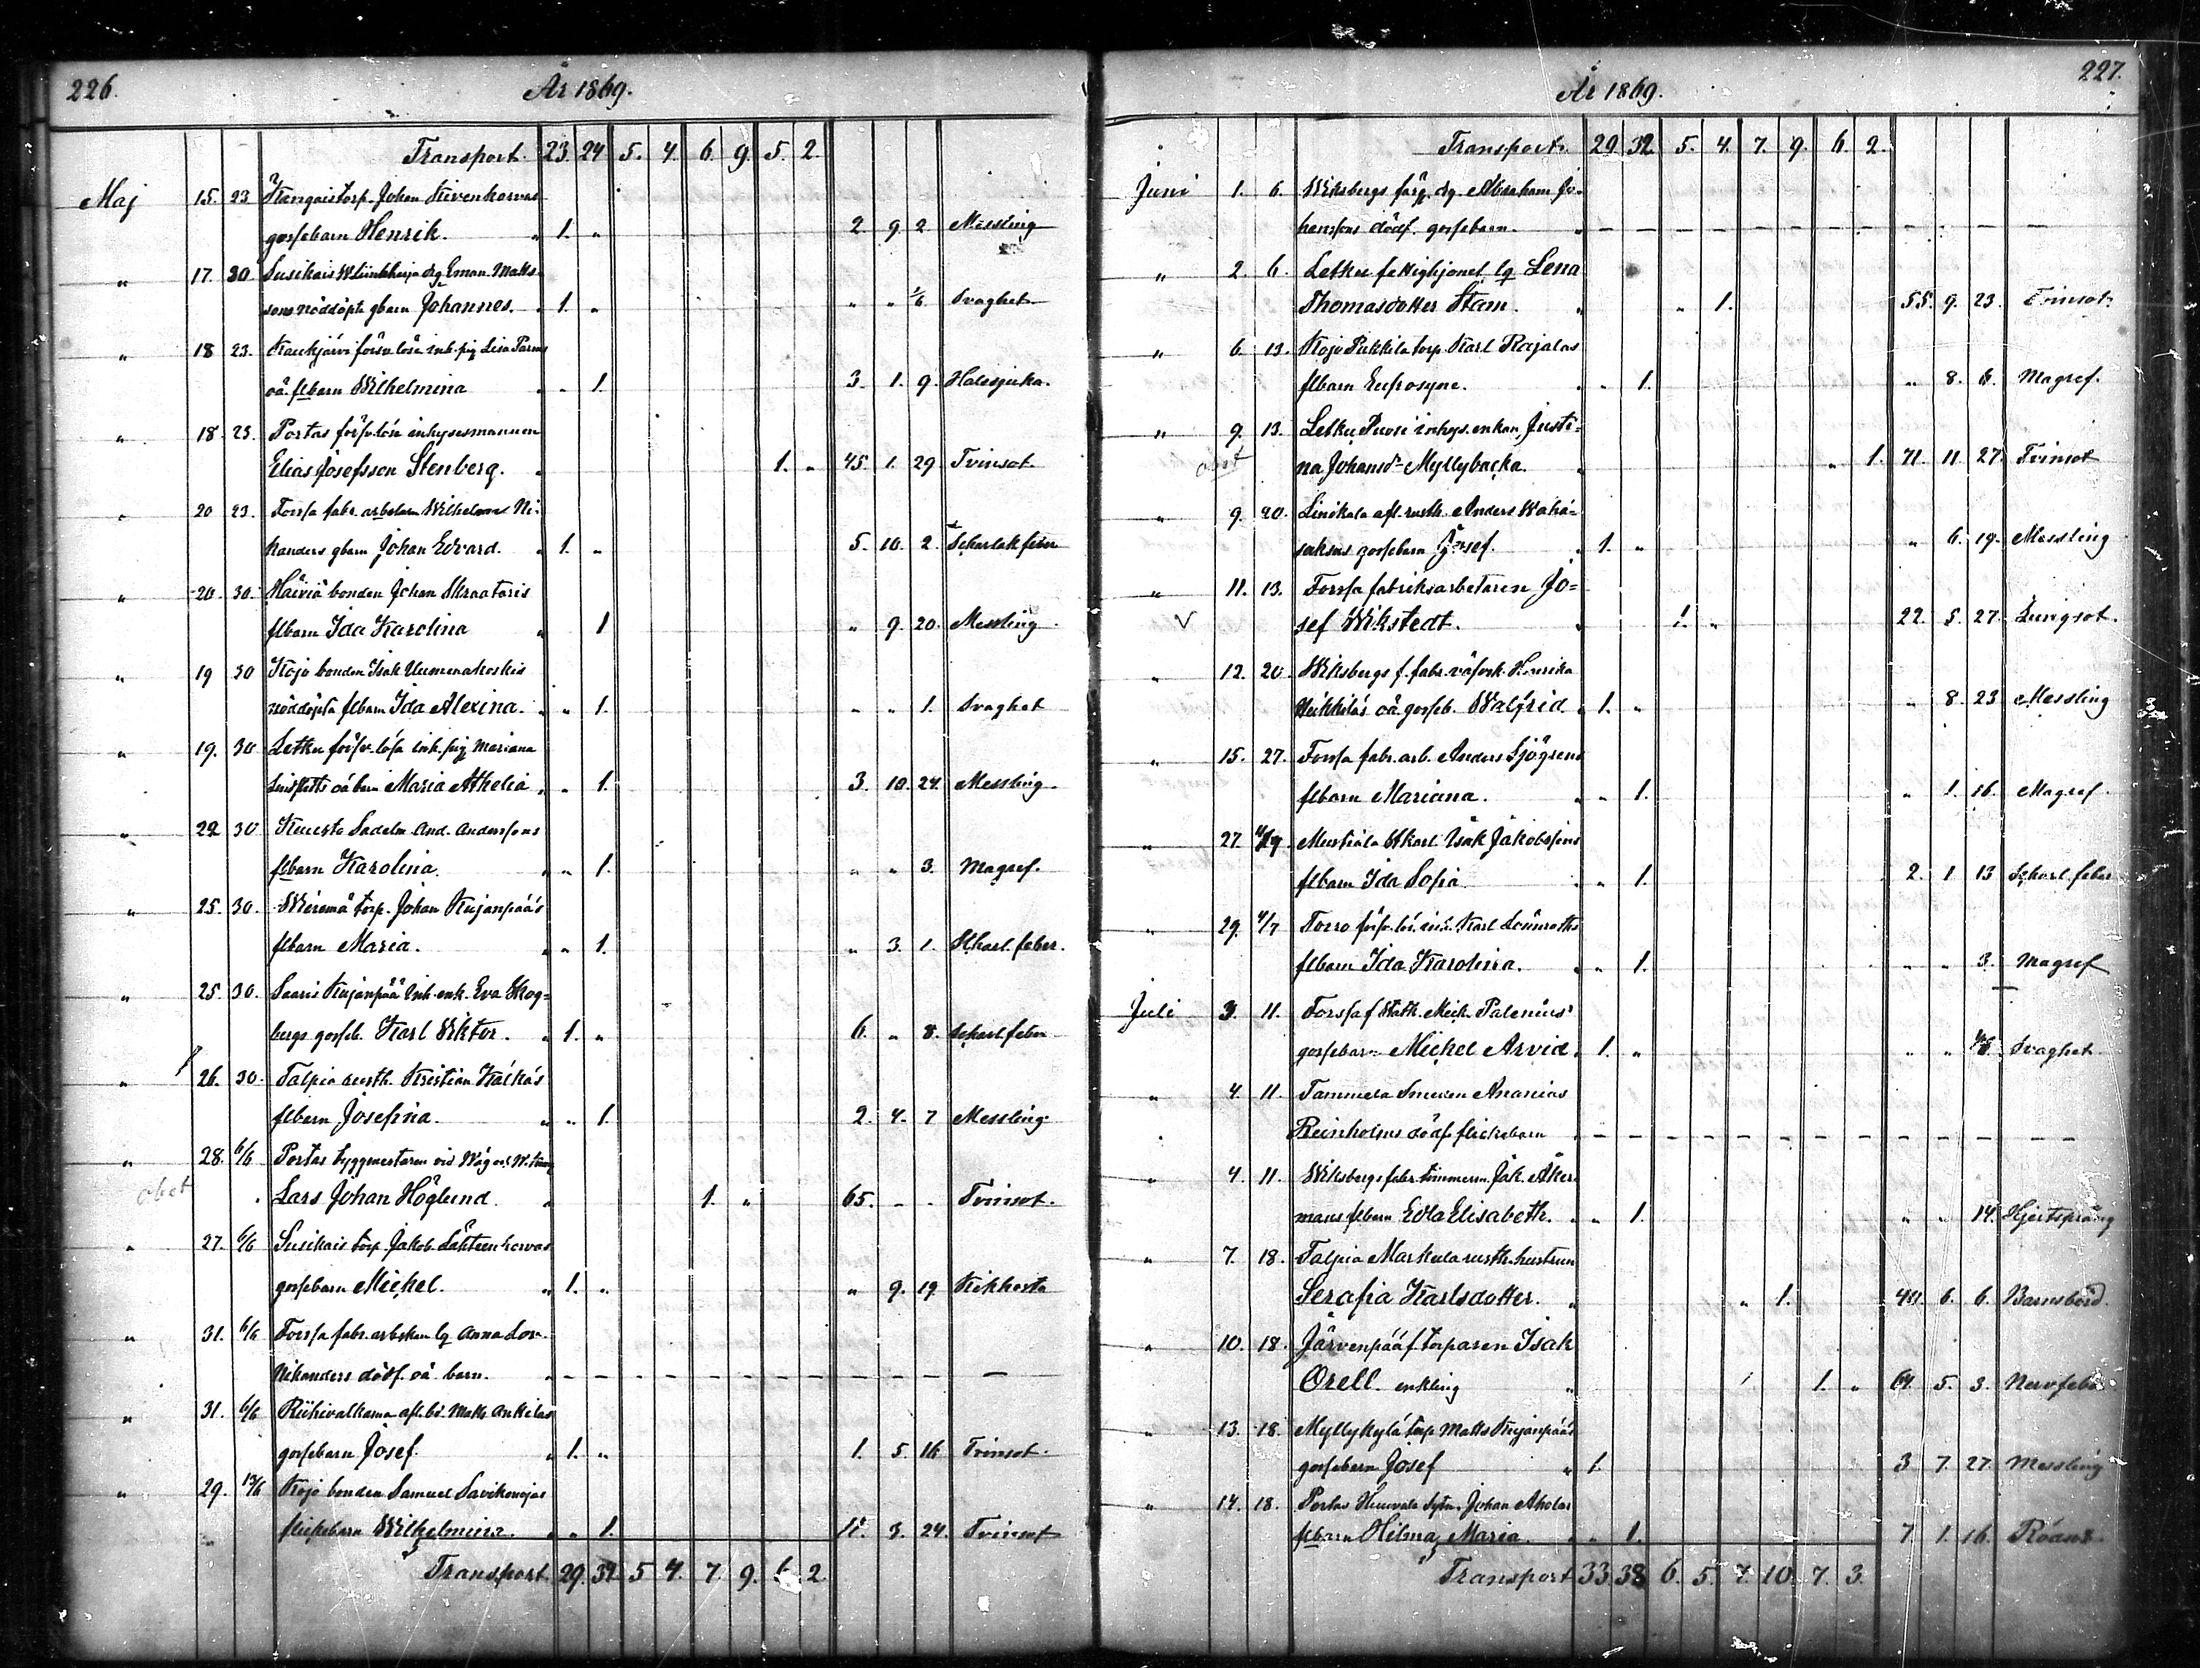 226.
År 1869.
Transport. 23. 24. 5. 4. 6. 9. 5. 2.
Maj 15. 23 Kangais torp. Johan Kivenkorvas
gossebarn Henrik. " 1. " 2 9. 2 Messling
" 17. 30. Susikais drg Eman. Matts
sons nöddöpte gbarn Johannes. " 1. " " " 1/6 Svaghet
" 18 23. Kaukjärvi försv. lösa inh. pig Lisa
oä. flbarn Wilhelmina " " 1. 3. 1. 9. Halssjuka.
" 18. 23. Portas försv. löse inhysesmannen
Elias Josefsson Stenberg. " 1. " 45. 1. 29 Tvinsot.
" 20 23. Forssa fabr. arbetaren Wilhelm Ni-
kanders gbarn Johan Edvard. " 1. " 5. 10. 2. Scharlakfeber
" 20. 30. Häiviä bonden Johan Skraataris
flbarn Ida Karolina " 1 " 9. 20. Messling.
" 19 30 Kojo bonden Isak Uumenakoskis
nöddöpta flbarn Ida Alexina. " " 1. " " 1. Svaghet
" 19. 30. Letku försv. lösa inh. pig Mariana
oä barn Maria Athelia " " 1. 3. 10. 24. Messling.
" 22 30 Kuusto Sadelm. And. Anderssons
flbarn Karolina. " " 1. " " 3. Magref.
" 25. 30. torp. Johan Kujanpää's
flbarn Maria. " " 1. " 3. 1. Skharl. feber.
" 25. 30. Saaris Kujanpää inh. enk. Eva Skog-
bergs gosseb. Karl Viktor. " 1. " 6. " 8. Scharl. feber
" 26. 30. Talpia rusth. Kristian Kälkäs
flbarn Josefina. " " 1. 2. 4. 7 Messling
" 28. 6/6 Portas byggmestaren vid
obet Lars Johan Höglund. " 1. " 65. - - Tvinsot.
" 27. 6/6 Susikais torp. Jakob Lähteenkorvas
gossebarn Mickel. " 1. " " 9. 19. Kikhosta
" 31. 6/6 Forssa fabr. arbskan lg Anna Lov.
Nikanders dödf. oä. barn. " - - - - - - - - - - - -
" 31. 6/6 Riihivalkama afl. bd. Matts Anttilas
gossebarn Josef. " 1. " 1. 5. 16 Tvinsot.
" 29. 13/6 Kojo bonden Samuel Savikonojas
flickebarn Wilhelmina. " " 1. 11. 3. 24. Tvinsot
Transport. 29. 32. 5 4. 7. 9. 6. 2.
227.
År 1869.
Transport. 29 32. 5. 4. 7. 9. 6. 2.
Juni 1. 6. Wiksbergs drg Abraham Jo-
hanssons dödf. gossebarn. " - - - - - - - - - - - -
" 2. 6. Letku fattighjonet lg Lena
Thomasdotter Stam. " " 1. 55. 9. 23. Tvinsot
" 6. 13. Kojo Pukkila torp. Karl Rajalas
flbarn Eufrosyne. " " 1. " 8. 6. Magref.
" 9. 13. Letku Puosi inhys. enkan Justi-
obet na Johansdr Myllybacka. " " 1. 71. 11. 27. Tvinsot
" 9. 20. Linikkala afl. rusth. Anders
gossebarn Josef. " 1. " " 6. 19. Messling
" 11. 13. Forssa fabriksarbetaren Jo-
V sef Wikstedt. " 1. " 22. 5. 27. Lungsot.
" 12. 20. Wiksbergs f. fabr. väfvsk. Henrika
Heikkiläs oä gosseb. Walfrid " 1. " " 8. 23 Messling
" 15. 27. Forssa fabr. arb. Anders Sjögrens
flbarn Mariana. " " 1. " 1. 16. Magref.
" 27. 4/7 Mustiala Stkarl Isak Jakobssons
flbarn Ida Sofia. " " 1. 2. 1 13 Scharl. feber
" 29. 4/7 Torro försv. lös. inh. Karl Lönnroths
flbarn Ida Karolina. " " 1. " " 3. Magref
Juli 3. 11. Forssa f. Mich. Palenius'
gossebarn Mickel Arvid. " 1. " " " Svaghet.
" 4. 11. Tammela Smeden Ananias
Reinholms dödf. flickebarn " - - - - - - - - - - - -
" 4. 11. Wiksbergs fabr. timmerm. Jak. Åker-
mans flbarn Edla Elisabeth. " " 1. " " 14. Hjertsprång
" 7. 18. Talpia Markula rusth. hustrun
Serafia Karlsdotter. " " 1. 40. 6. 6. Barnsbörd.
" 10. 18. Järvenpää f. torparen Isak
Orell. enkling " 1. " 64. 5. 3. Nervfeber
" 13. 18. Myllykylä torp. Matts Kujanpääs
gossebarn Josef " 1. 3 7. 27. Messling
" 14. 18. Portas Johan Aholas
flbarn Hilma Maria. " " 1. 7 1. 16.
Transport 33 38 6. 5. 7. 10. 7. 3.